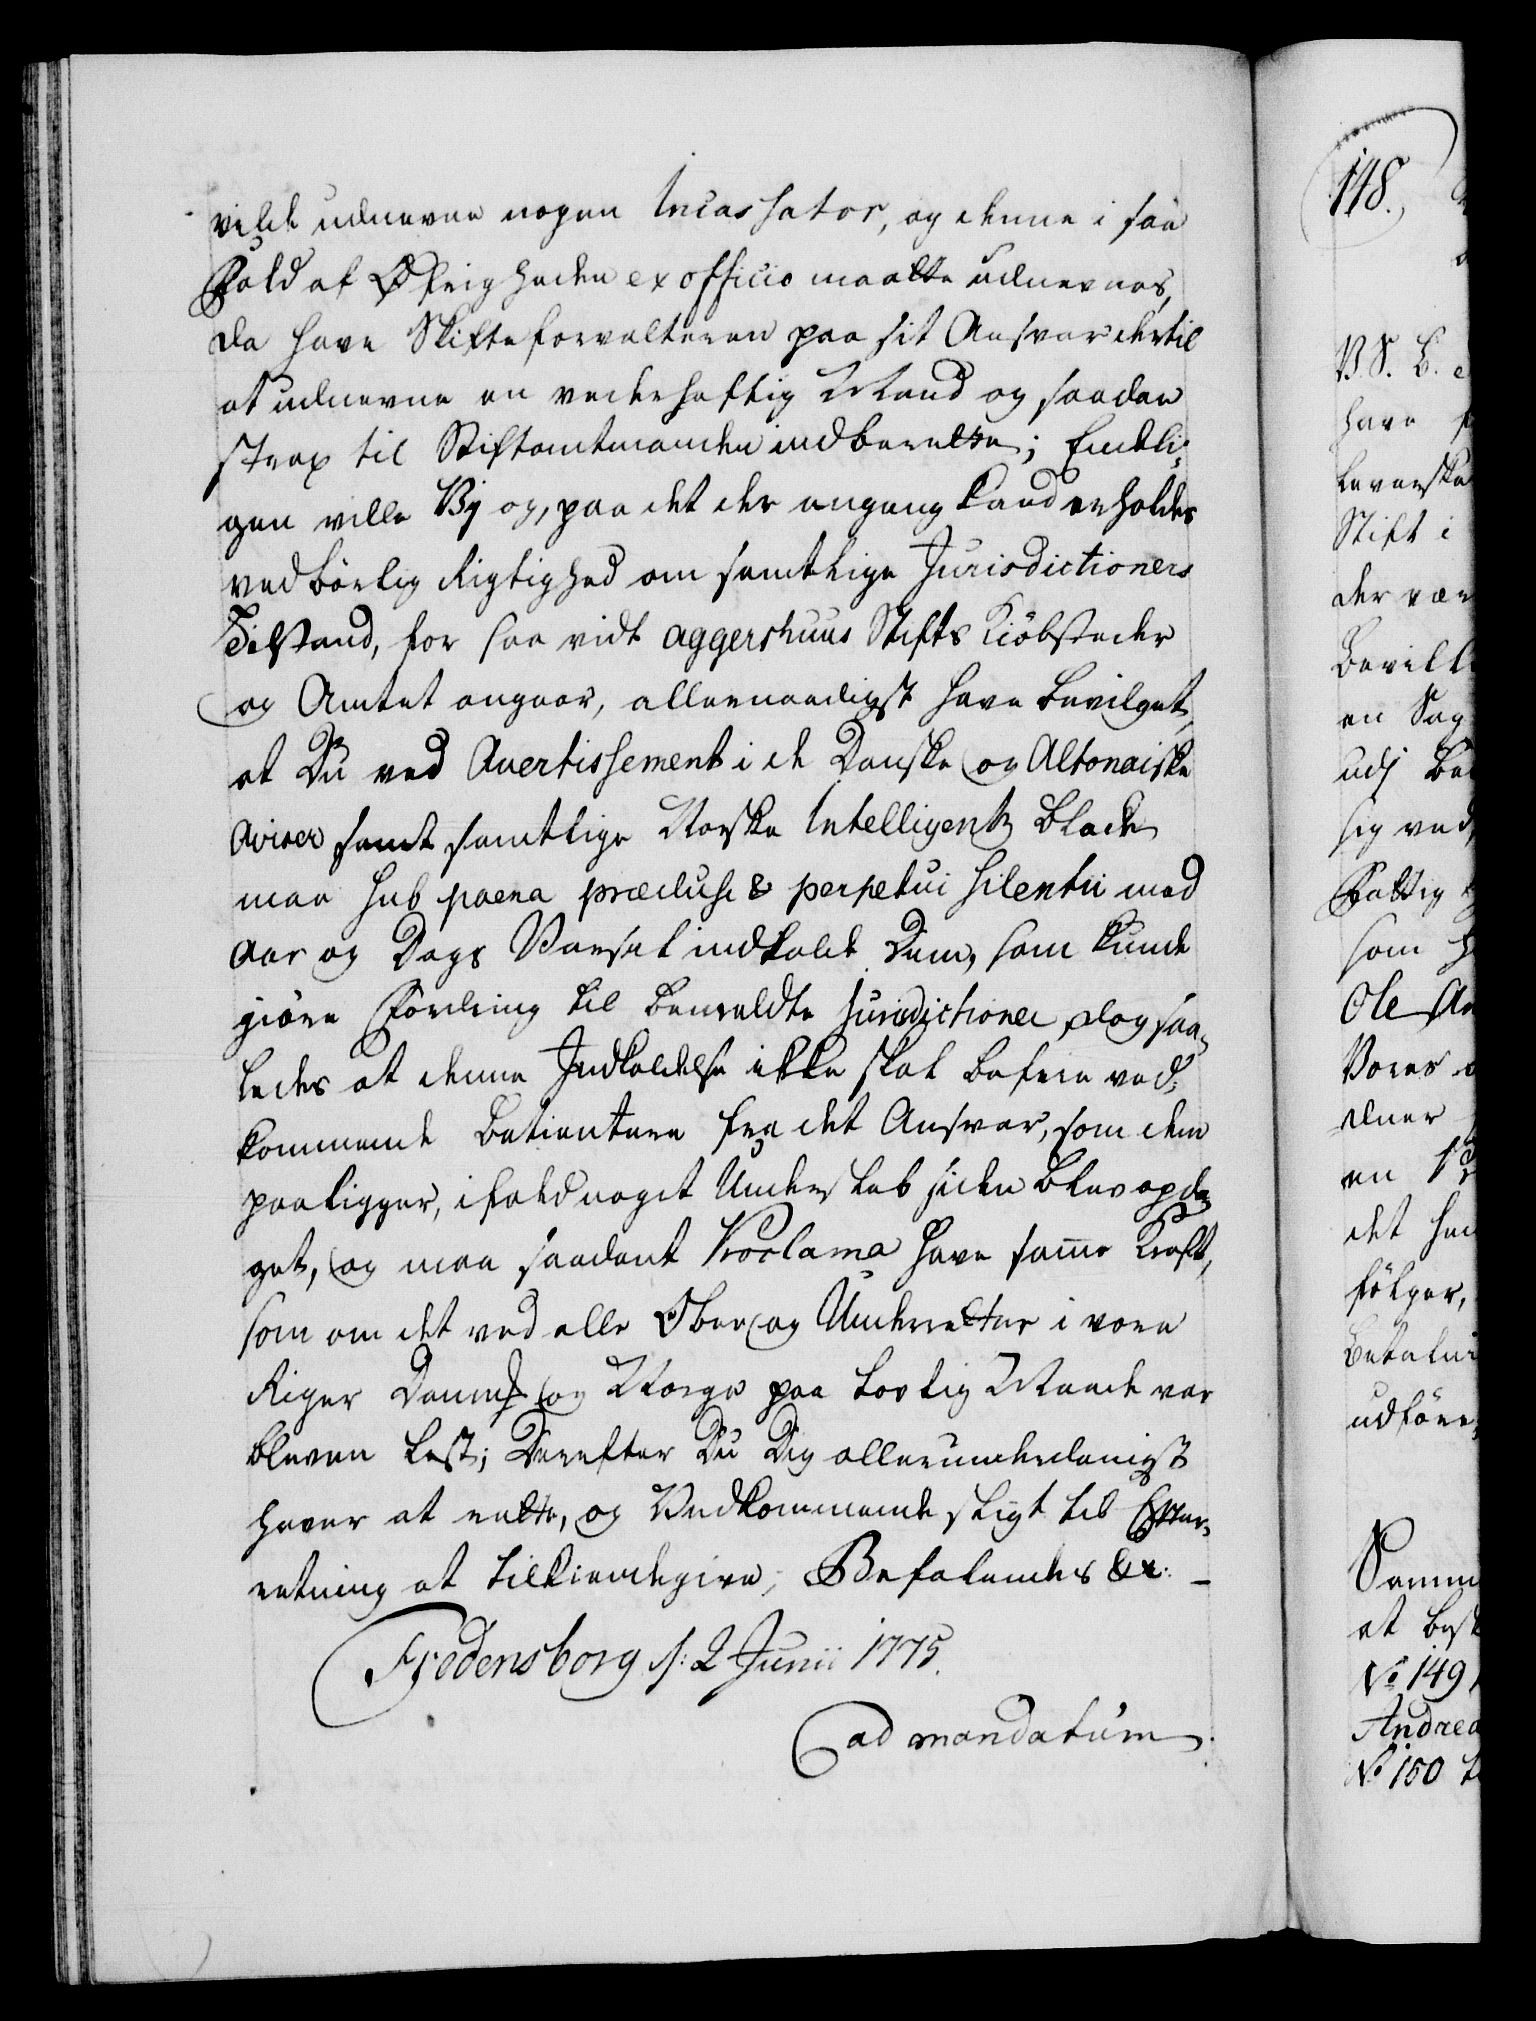 vilde udnevne nogen Incassator, og denne i saa
Fald af Øfrigheden ex officio maatte udnevnes,
da have Skifteforvalteren paa sit Ansvar dertil
at udnevne en vederheftig Mand og saadan
strax til Stiftamtmanden indberette; Endeli-
gen ville Vy og, paa det der engang kand erholdes
vedbörlig Rigtighed om samtlige Jurisdictioners
Tilstand, for saa vidt Aggershuus Stifts Kiöbsteder
og Amtet angaar, allernaadigst have bevilget,
at Du ved Avertissement i de Danske og Altonaiske
Aviser samt samtlige Norske Intelligentz Blade
maa sub poena præclusi & perpetui silentii med
Aar og Dags Varsel indkalde Dem, som kunde
giöre Fordring til bemeldte Jurisdictioner, dog saa-
ledes at denne Indkaldelse ikke skal befrie ved-
kommende Betientere fra det Ansvar, som dem
paaligger, ifald noget Underslæb siden blev opda-
get, og maa saadant Proclama have samme Kraft,
som om det ved alle Over og Underretter i vore
Riger Danmk og Norge paa lovlig Maade var
bleven læst; Derefter Du Dig allerunderdanigst
haver at rette, og Vedkommende sligt til Efter-
retning at tilkiendegive, Befalendes &c: –
Fredensborg d: 2 Junii 1775.
ad mandatum.
148.
V. S. B.
have
Stift i
der
en Sag
udj
sig ved
Fattig
som
Ole An
Vores
en
det
fölger,
udföre,
at
No 149
Andrea
No 150